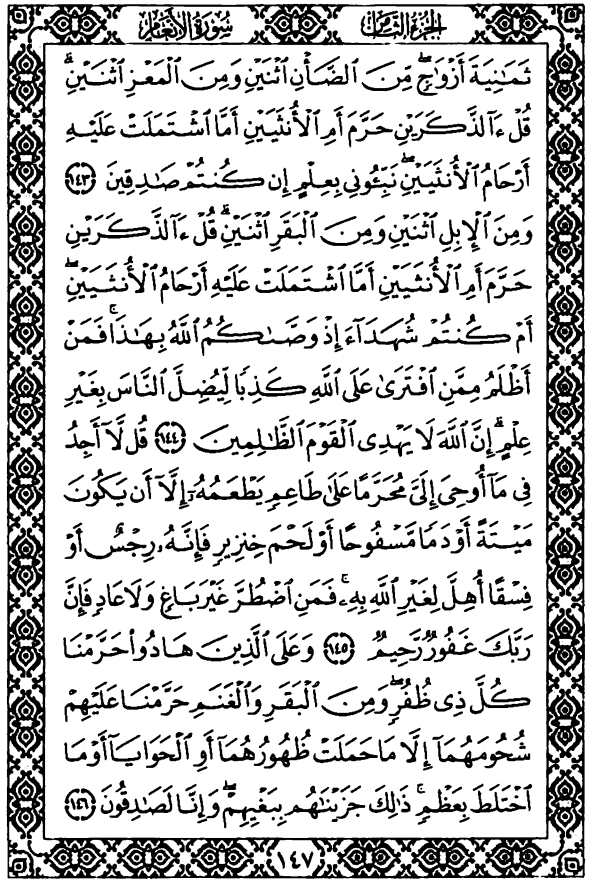 سُورَةُ الأَنْعَامِ
الجُزْءُ الثَّامِنُ
ثَمَٰنِيَةَ أَزْوَٰجٍ ۖ مِّنَ ٱلضَّأْنِ ٱثْنَيْنِ وَمِنَ ٱلْمَعْزِ ٱثْنَيْنِ ۗ
قُلْ ءَآلذَّكَرَيْنِ حَرَّمَ أَمِ ٱلْأُنثَيَيْنِ أَمَّا ٱشْتَمَلَتْ عَلَيْهِ
أَرْحَامُ ٱلْأُنثَيَيْنِ ۖ نَبِّـُٔونِى بِعِلْمٍ إِن كُنتُمْ صَٰدِقِينَ ﴿١٤٣﴾
وَمِنَ ٱلْإِبِلِ ٱثْنَيْنِ وَمِنَ ٱلْبَقَرِ ٱثْنَيْنِ ۗ قُلْ ءَآلذَّكَرَيْنِ
حَرَّمَ أَمِ ٱلْأُنثَيَيْنِ أَمَّا ٱشْتَمَلَتْ عَلَيْهِ أَرْحَامُ ٱلْأُنثَيَيْنِ ۖ
أَمْ كُنتُمْ شُهَدَآءَ إِذْ وَصَّىٰكُمُ ٱللَّهُ بِهَٰذَا ۚ فَمَنْ
أَظْلَمُ مِمَّنِ ٱفْتَرَىٰ عَلَى ٱللَّهِ كَذِبًا لِّيُضِلَّ ٱلنَّاسَ بِغَيْرِ
عِلْمٍ ۗ إِنَّ ٱللَّهَ لَا يَهْدِى ٱلْقَوْمَ ٱلظَّٰلِمِينَ ﴿١٤٤﴾ قُل لَّآ أَجِدُ
فِى مَآ أُوحِىَ إِلَىَّ مُحَرَّمًا عَلَىٰ طَاعِمٍ يَطْعَمُهُۥٓ إِلَّآ أَن يَكُونَ
مَيْتَةً أَوْ دَمًا مَّسْفُوحًا أَوْ لَحْمَ خِنزِيرٍ فَإِنَّهُۥ رِجْسٌ أَوْ
فِسْقًا أُهِلَّ لِغَيْرِ ٱللَّهِ بِهِۦ ۚ فَمَنِ ٱضْطُرَّ غَيْرَ بَاغٍ وَلَا عَادٍ فَإِنَّ
رَبَّكَ غَفُورٌ رَّحِيمٌ ﴿١٤٥﴾ وَعَلَى ٱلَّذِينَ هَادُوا۟ حَرَّمْنَا
كُلَّ ذِى ظُفُرٍ ۖ وَمِنَ ٱلْبَقَرِ وَٱلْغَنَمِ حَرَّمْنَا عَلَيْهِمْ
شُحُومَهُمَآ إِلَّا مَا حَمَلَتْ ظُهُورُهُمَآ أَوِ ٱلْحَوَايَآ أَوْ مَا
ٱخْتَلَطَ بِعَظْمٍ ۚ ذَٰلِكَ جَزَيْنَٰهُم بِبَغْيِهِمْ ۖ وَإِنَّا لَصَٰدِقُونَ ﴿١٤٦﴾
١٤٧